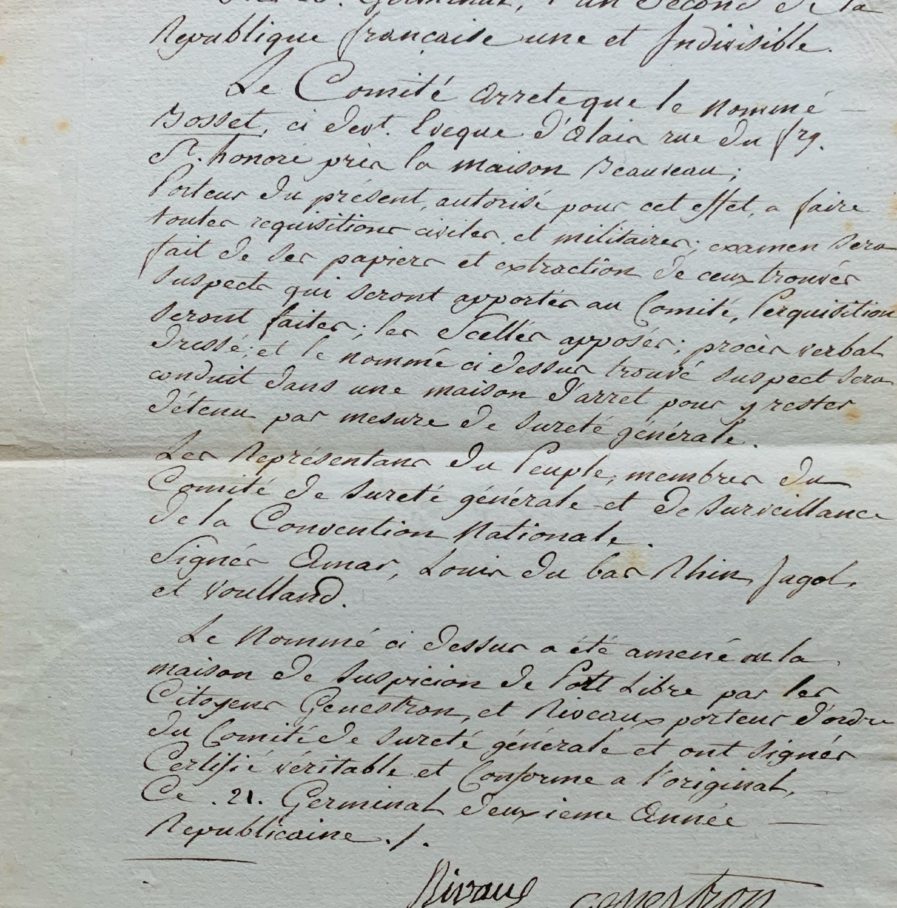 Germinal, l'an Second de la
Republique française une et Indivisible.
Le Comité Arrete que le nommé
Bosset, ci devt. Eveque d'Alais rue du fbg.
St. honoré près la maison Beauveau;
Porteur du present, autorisé pour cet effet, a faire
toutes requisitions civiles, et militaires; examen sera
fait de ses papiers et extraction de ceux trouvés
suspects qui seront apportés au Comité, Perquisition
seront faites; les scellés apposés; procès verbal
dressé; et le nommé ci dessus trouvé suspect sera
conduit dans une maison d'arret pour y rester
détenu par mesure de sureté générale.
Les Représentans du Peuple, membres du
Comité de sureté générale et de surveillance
de la Convention Nationale.
Signés Amar, Louis du bas Rhin, Jagot,
et Voulland.
Le Nommé ci dessus a été amené en la
maison de suspicion de Port Libre par les
Citoyens Genestron, et Riveaux porteurs d'ordre
du Comité de sureté générale et ont signés
Certifié véritable et Conforme a l'original,
Ce .21. Germinal deuxieme Année
Republicaine ./.
Rivaus genestron